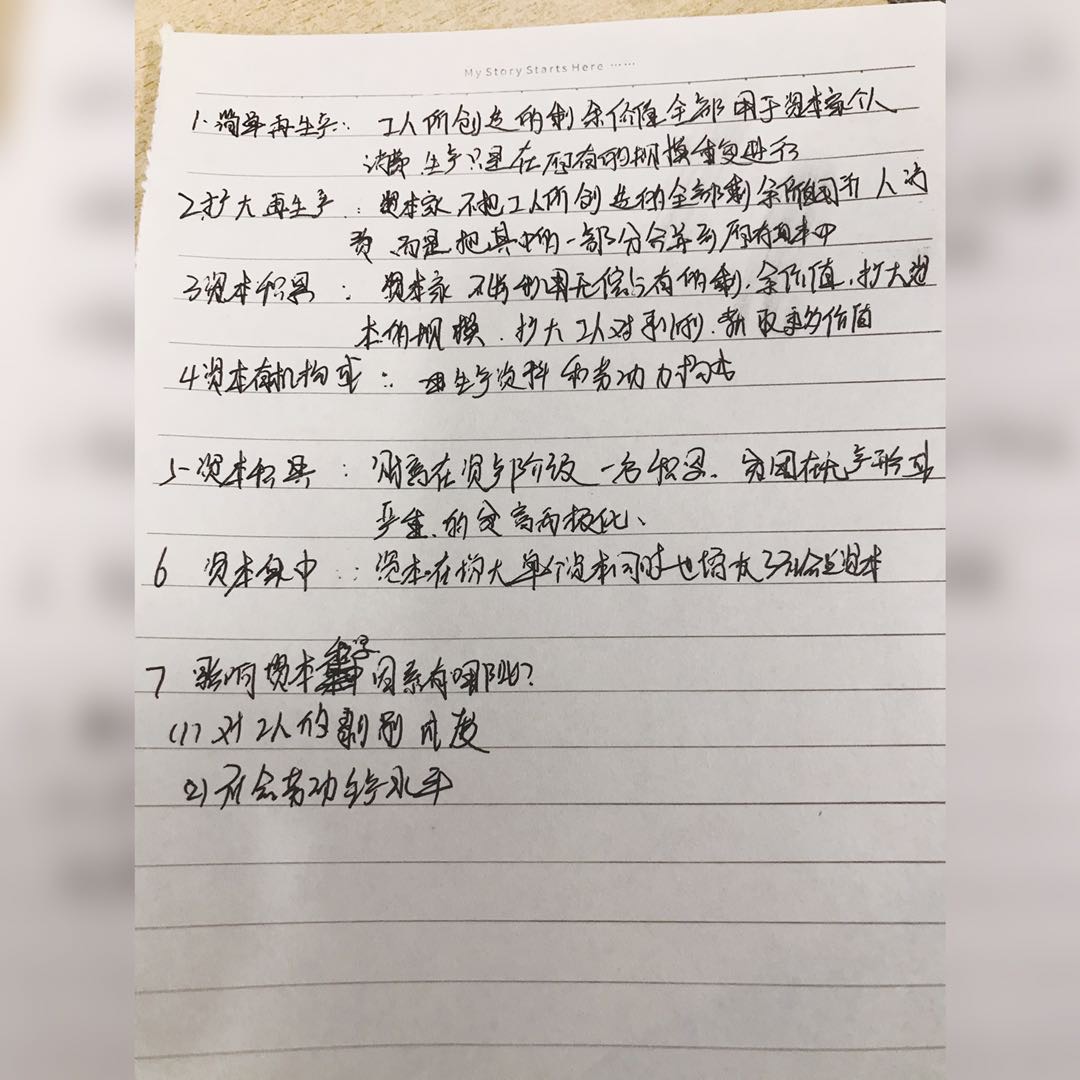 My Story Starts Here ……
1. 简单再生产: 工人所创造的剩余价值全部用于资本家个人
消费 生产只是在原有的规模重复进行
2. 扩大再生产: 资本家不把工人所创造的全部剩余价值用于个人消
费,而是把其中的一部分合并到原有资本中
3 资本积累: 资本家不断利用无偿占有的剩余价值,扩大资
本的规模,扩大工人对剥削,获取更多价值
4 资本有机构成: 由生产资料和劳动力构成
5 资本积累: 财富在资产阶级一方积累,贫困在无产形成
严重的贫富两极化、
6 资本集中: 资本在增大单个资本同时也增大了社会总资本
7 影响资本积累因系有哪些?
(1) 对工人的剥削程度
(2) 社会劳动生产水平